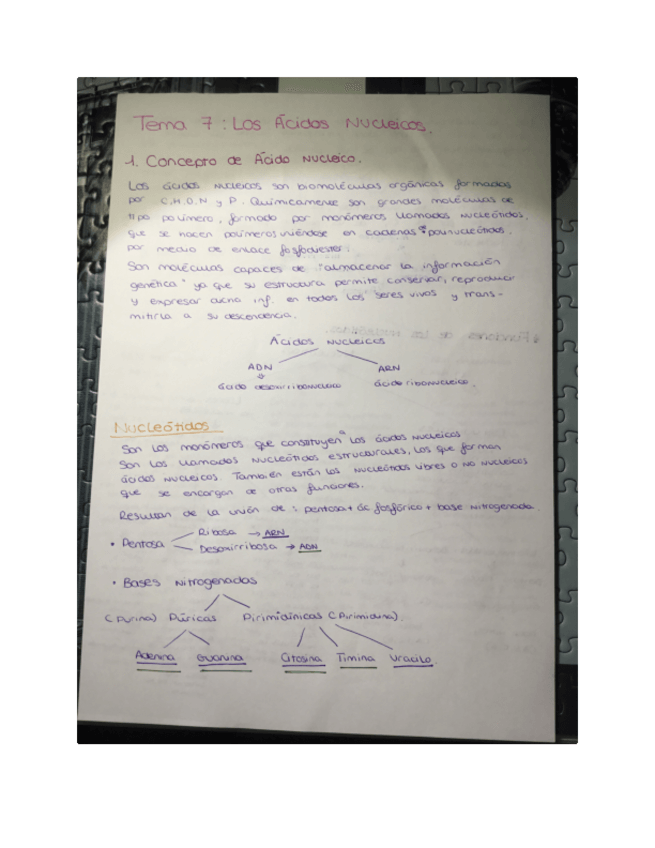 Tema 7: Los Ácidos Nucleicos.
1. Concepto de Ácido Nucleico.
Los ácidos nucleicos son biomoléculas orgánicas formadas
por C,H,O,N y P. Químicamente son grandes moléculas de
tipo polímero, formado por monómeros llamados nucleótidos,
que se hacen polímeros uniéndose en cadenas de polinucleótidos
por medio de enlace fosfodiester.
Son moléculas capaces de "almacenar la información
genética" ya que su estructura permite conservar, reproducir
y expresar dicha inf. en todos los seres vivos y trans-
mitirla a su descendencia.
Ácidos nucleicos
ADN ARN
ácido desoxirribonucleico ácido ribonucleico.
Nucleótidos
Son los monómeros que constituyen a los ácidos nucleicos
Son los llamados nucleótidos estructurales, los que forman
ácidos nucleicos. También están los nucleótidos libres o no nucleicos
que se encargan de otras funciones.
Resultan de la unión de: pentosa + ác fosfórico + base nitrogenada
• Pentosa
Ribosa → ARN
Desoxirribosa → ADN
• Bases Nitrogenadas
(Purina) Púricas Pirimidínicas (Pirimidina).
Adenina Guanina Citosina Timina Uracilo.